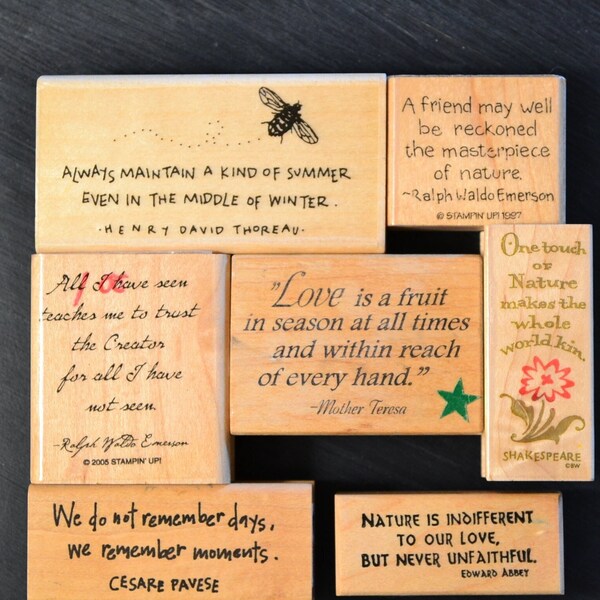 ALWAYS MAINTAIN A KIND OF SUMMER
EVEN IN THE MIDDLE OF WINTER.
·HENRY DAVID THOREAU·
A friend may well
be reckoned
the masterpiece
of nature.
~Ralph Waldo Emerson
© STAMPIN' UP! 1997
All I have seen
teaches me to trust
the Creator
for all I have
not seen.
~Ralph Waldo Emerson
© 2005 STAMPIN' UP!
"Love is a fruit
in season at all times
and within reach
of every hand."
~Mother Teresa
One touch
of
Nature
makes the
whole
world kin.
SHAKESPEARE
We do not remember days,
we remember moments.
CESARE PAVESE
NATURE IS INDIFFERENT
TO OUR LOVE,
BUT NEVER UNFAITHFUL.
EDWARD ABBEY